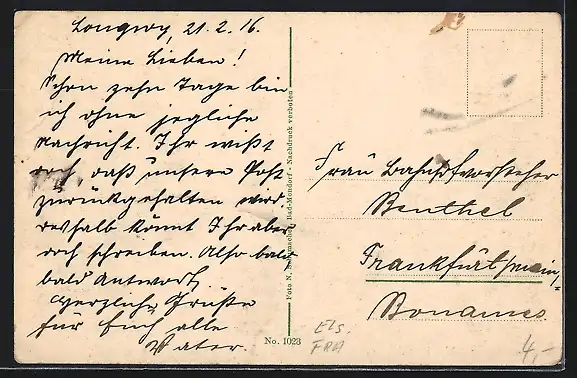 Longwy, 21.2.16.
Meine Lieben!
Schon zehn Tage bin
ich ohne jegliche
Nachricht. Ihr wißt
doch, daß unsere Post
zurückgehalten wird.
deshalb könnt Ihr aber
doch schreiben. Also bald
bald Antwort.
Herzliche Grüße
für Euch alle
Vater.
Foto N. Bad-Mondorf - Nachdruck verboten
No. 1023
Frau Bahnhofvorsteher
Benthel
Frankfurt/Main,=
Bonames
Els.
FRA
4,-